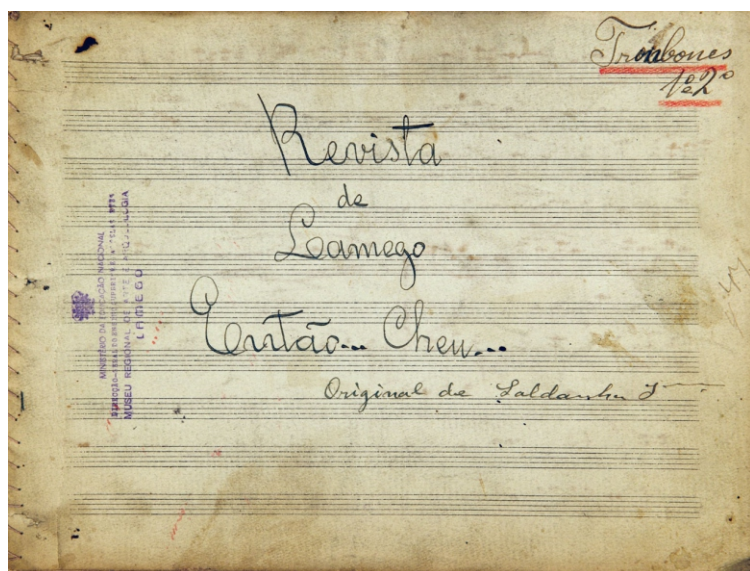 Trombones
1º e 2º
Revista
de
Lamego
Então... Cheu...
Original de Saldanha J
MINISTÉRIO DA EDUCAÇÃO NACIONAL
MUSEU REGIONAL DE ARTE E ARQUEOLOGIA
LAMEGO